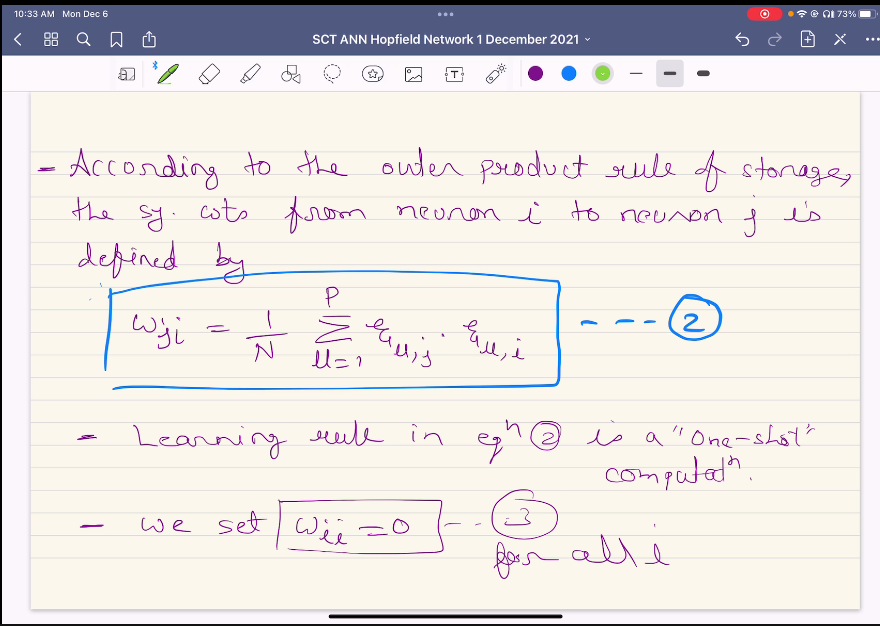 10:33 AM Mon Dec 6
73%
SCT ANN Hopfield Network 1 December 2021
- According to the outer product rule of storage,
the sy. wts from neuron i to neuron j is
defined by
w_{ji} = \frac{1}{N} \sum_{μ=1}^{P} ξ_{μ,j} · ξ_{μ,i} - - - - ②
- Learning rule in eqⁿ ② is a "One-shot"
computatⁿ.
- we set w_{ii} = 0 - - ③
for all i